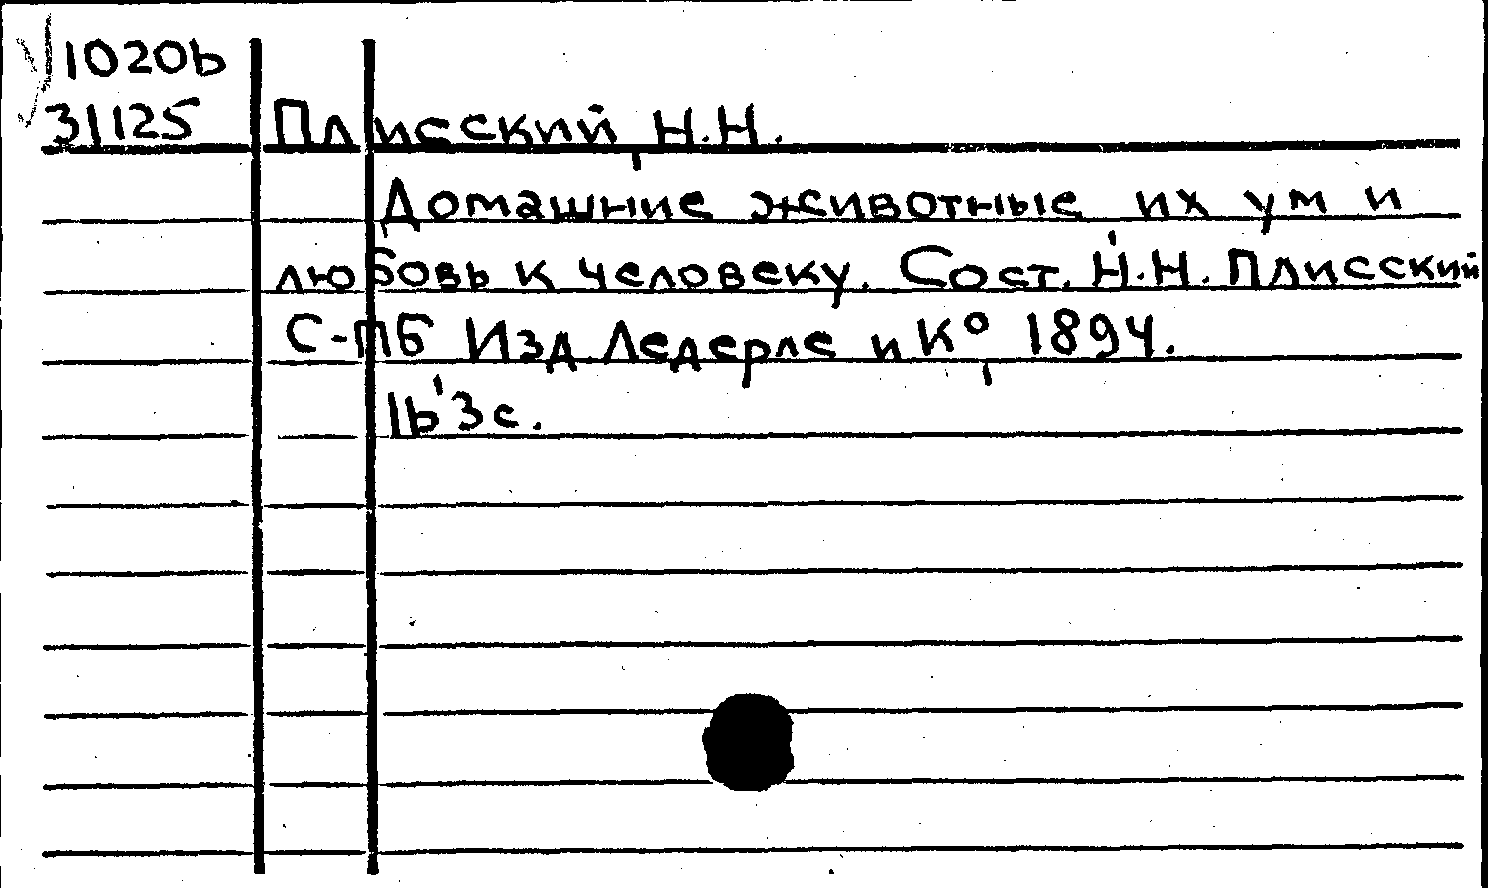 1020b
31125 Плисский, Н.Н.
Домашние животные их ум и
любовь к человеку. Сост. Н.Н. Плисский
С-ПБ Изд. Ледерле и Кº, 1894.
1b'3 с.